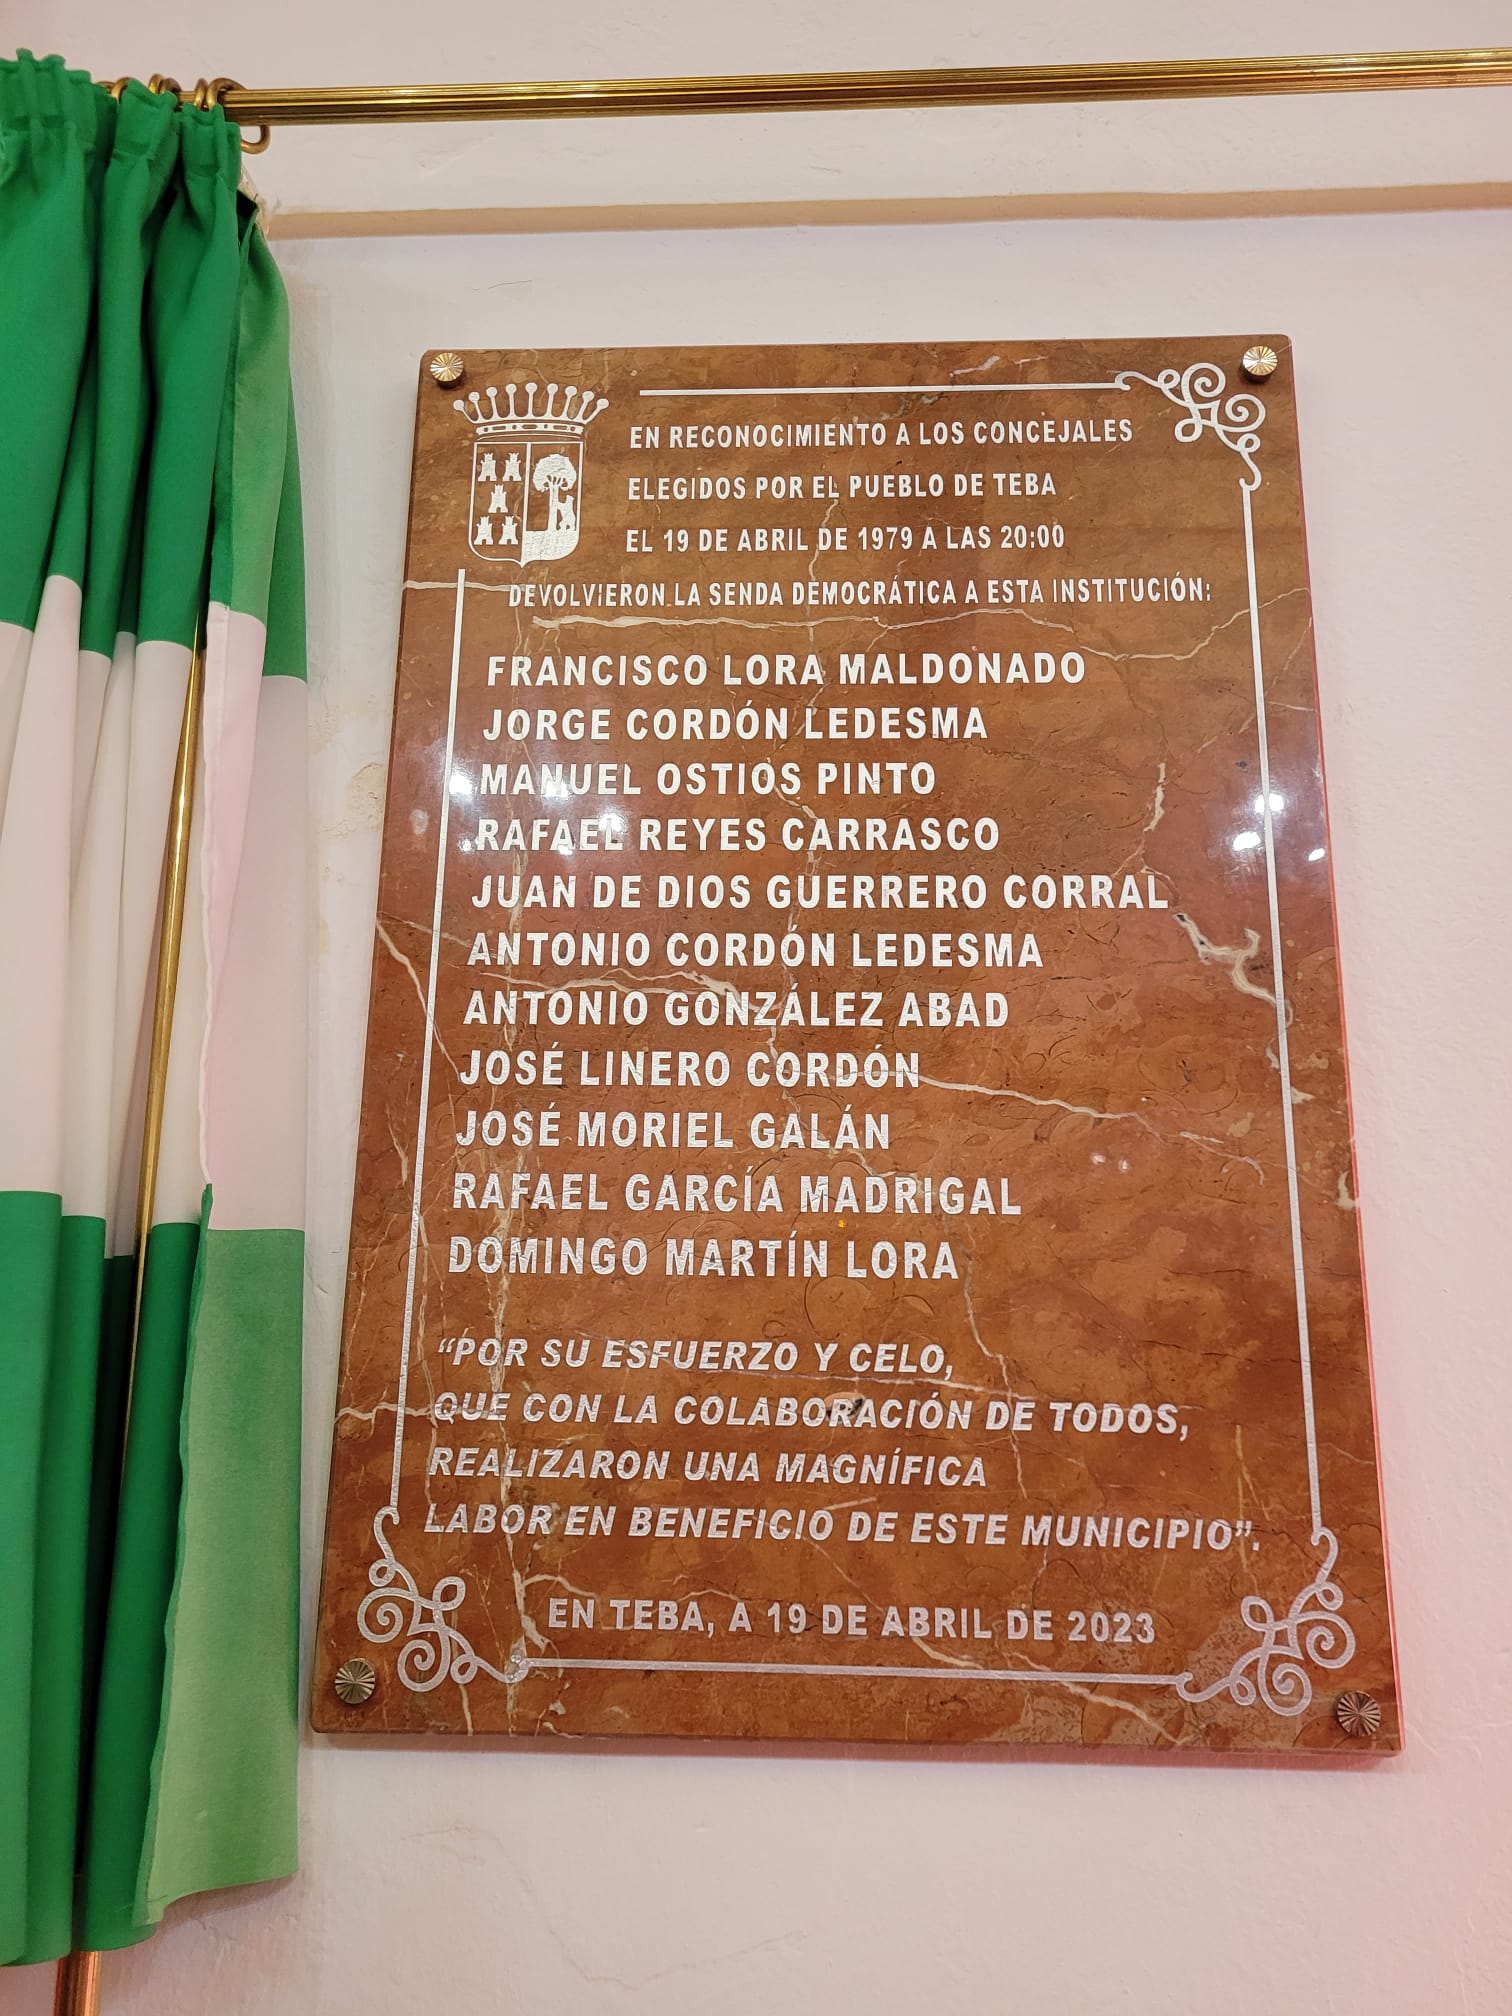 EN RECONOCIMIENTO A LOS CONCEJALES
ELEGIDOS POR EL PUEBLO DE TEBA
EL 19 DE ABRIL DE 1979 A LAS 20:00
DEVOLVIERON LA SENDA DEMOCRÁTICA A ESTA INSTITUCIÓN:
FRANCISCO LORA MALDONADO
JORGE CORDÓN LEDESMA
MANUEL OSTIOS PINTO
RAFAEL REYES CARRASCO
JUAN DE DIOS GUERRERO CORRAL
ANTONIO CORDÓN LEDESMA
ANTONIO GONZÁLEZ ABAD
JOSÉ LINERO CORDÓN
JOSÉ MORIEL GALÁN
RAFAEL GARCÍA MADRIGAL
DOMINGO MARTÍN LORA
“POR SU ESFUERZO Y CELO,
QUE CON LA COLABORACIÓN DE TODOS,
REALIZARON UNA MAGNÍFICA
LABOR EN BENEFICIO DE ESTE MUNICIPIO”.
EN TEBA, A 19 DE ABRIL DE 2023